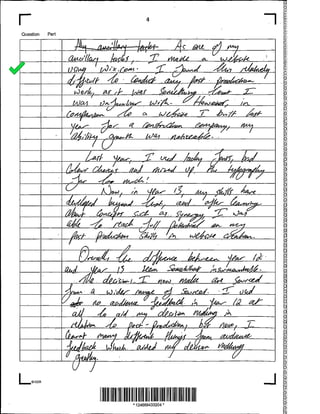 4
Question Part
My ancillary tasks - As one of my
ancillary tasks, I made a website
using wix.com. I found this relatively
difficult to conduct any post production
work, as it was something that I
was unfamiliar with. However, in
comparison to a website I built last
year for a construction company, my
ability growth was noticeable.
Last year, I used tacky fonts, bad
colour changes and mixed up the typography
far too much!
Now, in year 13, my skills have
developed beyond that, and after learning
about concepts such as synergy, I was
able to reach full potential on my
Post Production skills in website creation.
Overall, the difference between year 12
and year 13 seem somewhat insurmountable.
The decisions I now make are sourced
from a wider range of sources. I used
no audience feedback in year 12 at
all to aid my decision making in
relation to post-production, but now, I
learnt many different things from audience
feedback which aided my decision making
greatly.
*1246943320 4*